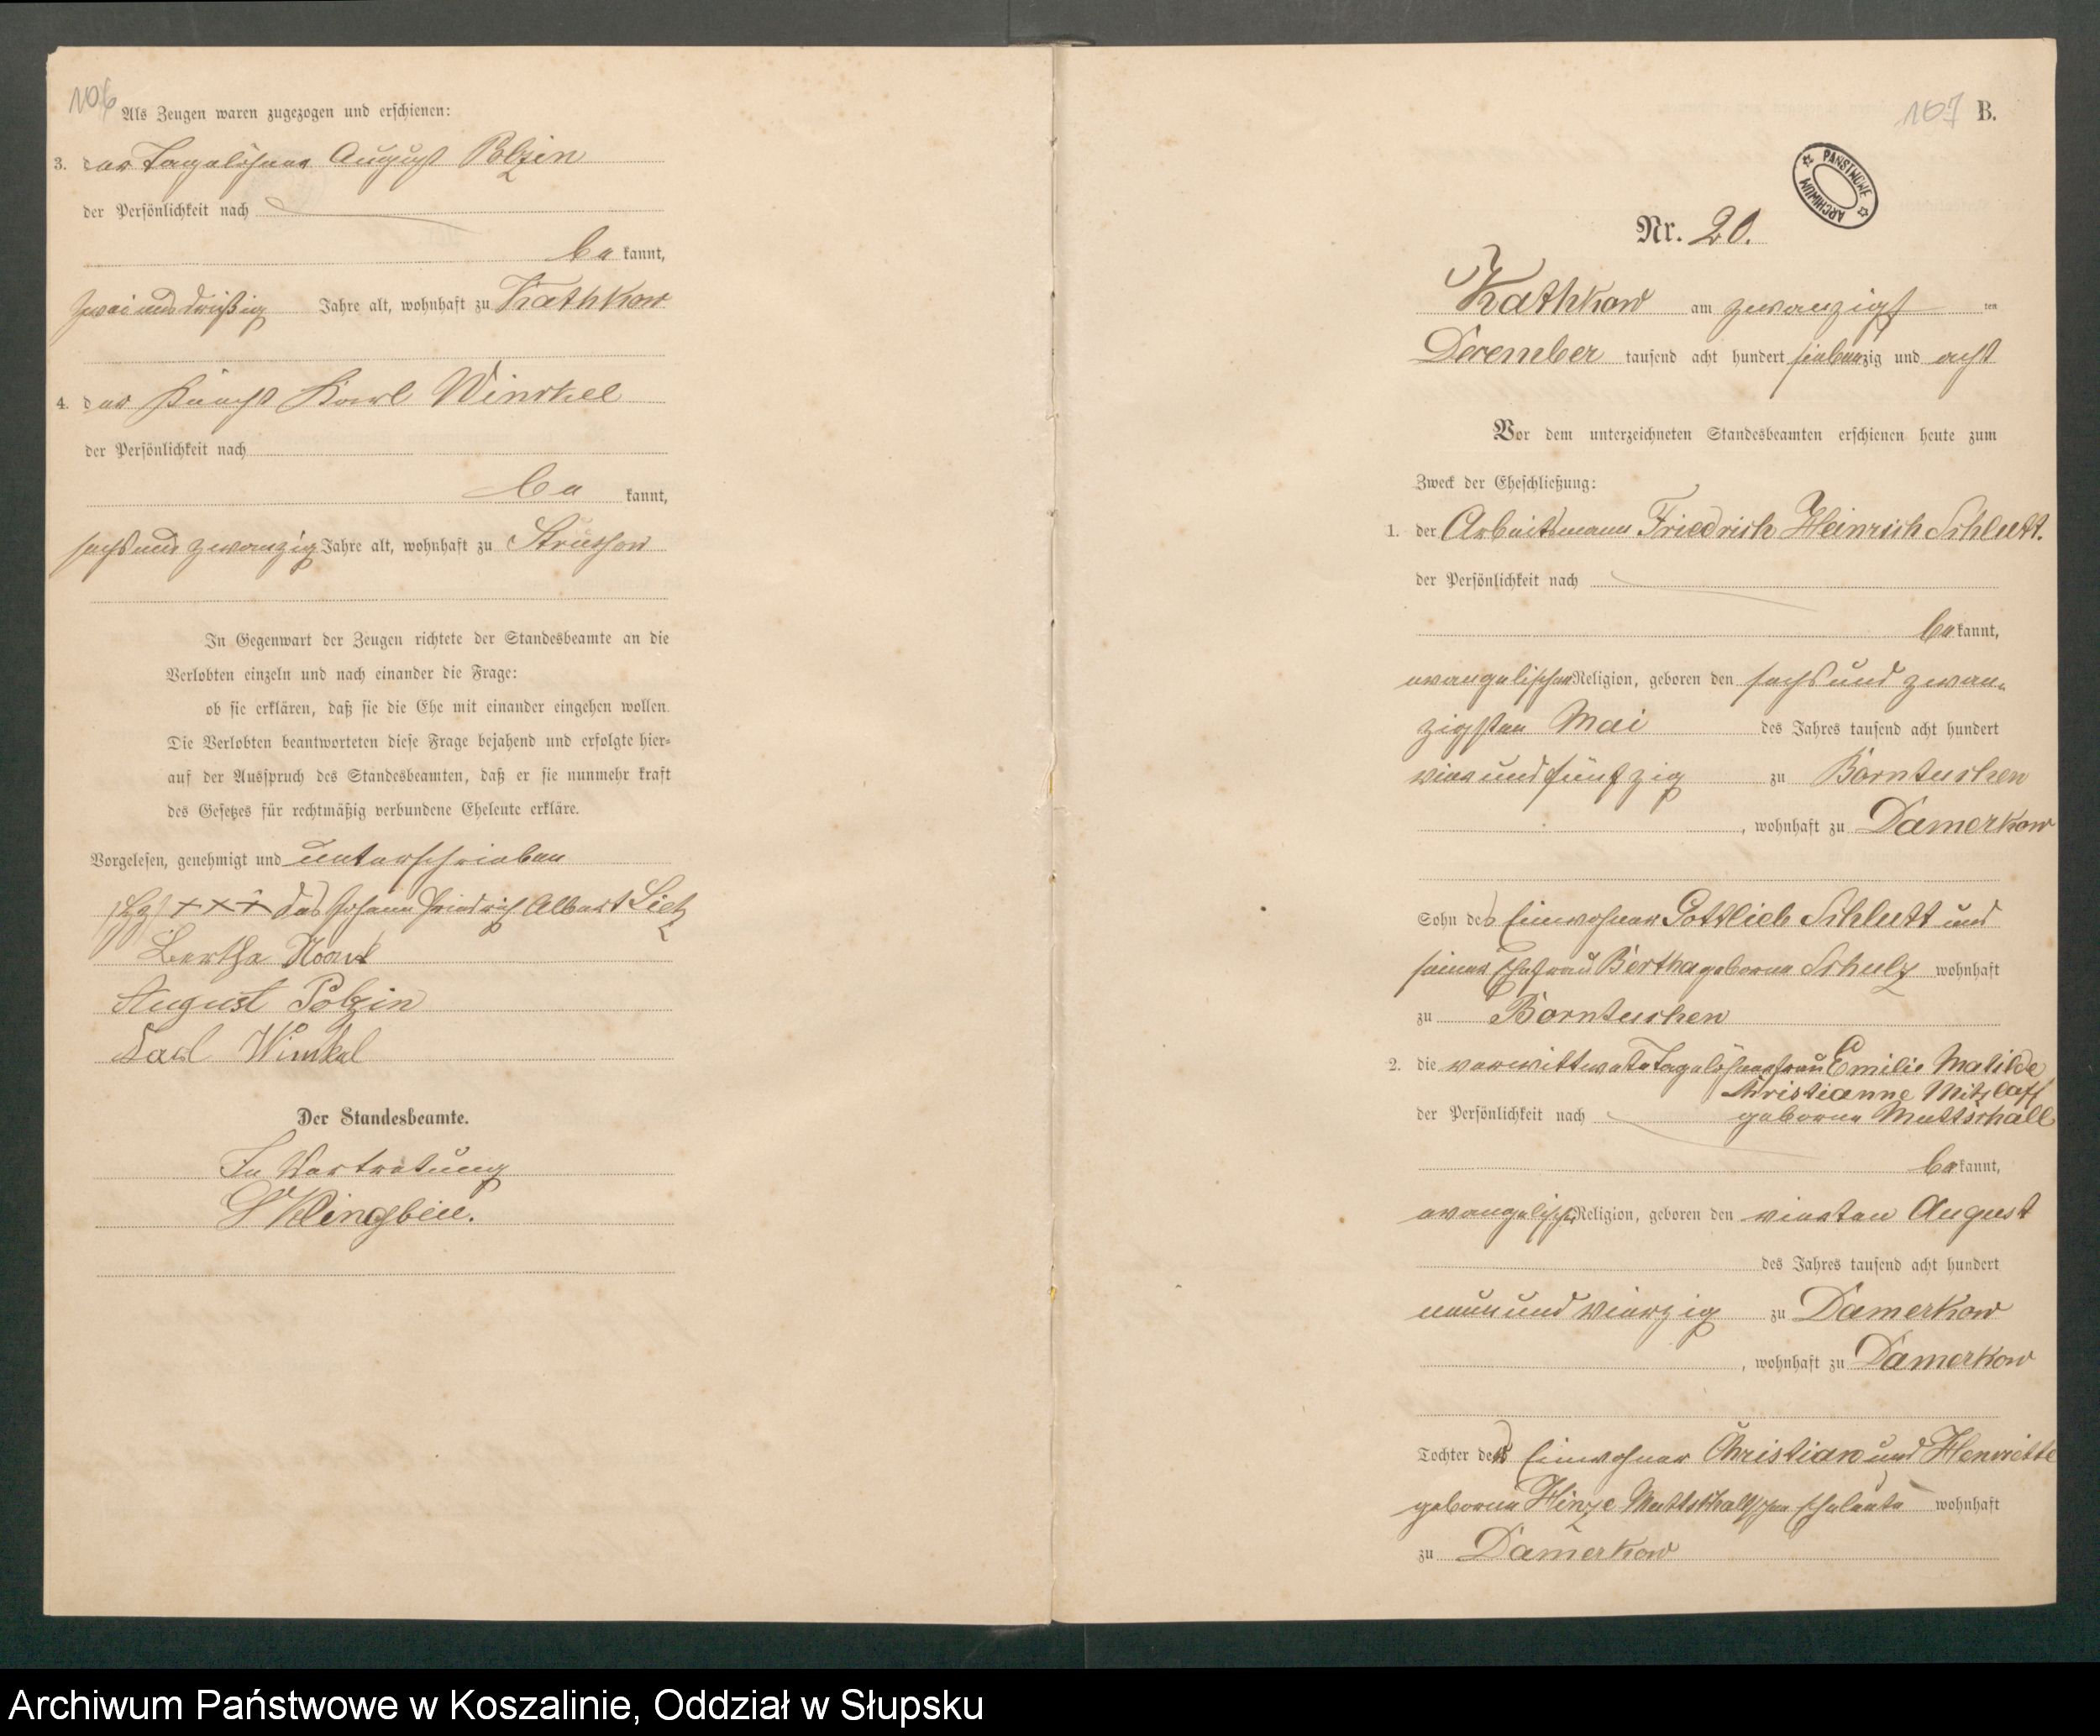 106
Als Zeugen waren zugezogen und erschienen:
3. der Tagelöhner August Polzin
der Persönlichkeit nach
be kannt,
zwei und dreißig Jahre alt, wohnhaft zu Kathkow
4. der Knecht Karl Winckel
der Persönlichkeit nach
be kannt,
sechs und zwanzig Jahre alt, wohnhaft zu Strussow
In Gegenwart der Zeugen richtete der Standesbeamte an die
Verlobten einzeln und nach einander die Frage:
ob sie erklären, daß sie die Ehe mit einander eingehen wollen.
Die Verlobten beantworteten diese Frage bejahend und erfolgte hier-
auf der Ausspruch des Standesbeamten, daß er sie nunmehr kraft
des Gesetzes für rechtmäßig verbundene Eheleute erkläre.
Vorgelesen, genehmigt und unterschrieben
+++ des Johann Friedrich Albert Lietz
Bertha
August Polzin
Karl Winkel
Der Standesbeamte.
In Vertretung
Klingbeil.
107 B.
PAŃSTWOWE ARCHIWUM
Nr. 20.
Kathkow am zwanzigst ten
December tausend acht hundert siebenzig und acht
Vor dem unterzeichneten Standesbeamten erschienen heute zum
Zweck der Eheschließung:
1. der Arbeitsmann Friedrich Heinrich Schlutt.
der Persönlichkeit nach
be kannt,
evangelischer Religion, geboren den sechs und zwan-
zigsten Mai des Jahres tausend acht hundert
vier und fünfzig zu Borntuchen
, wohnhaft zu Damerkow
Sohn des Einwohner Gottlieb Schlutt und
seiner Ehefrau Bertha geborne Schulz wohnhaft
zu Borntuchen
2. die verwittwete Tagelöhnerfrau Emilie Matilde
Christianne Mitzlaff
der Persönlichkeit nach geborne Muttschall
be kannt,
evangelischer Religion, geboren den vierten August
des Jahres tausend acht hundert
neun und vierzig zu Damerkow
, wohnhaft zu Damerkow
Tochter der Einwohner Christian und Henriette
geborne Hinze Muttschallschen Eheleute wohnhaft
zu Damerkow
Archiwum Państwowe w Koszalinie, Oddział w Słupsku